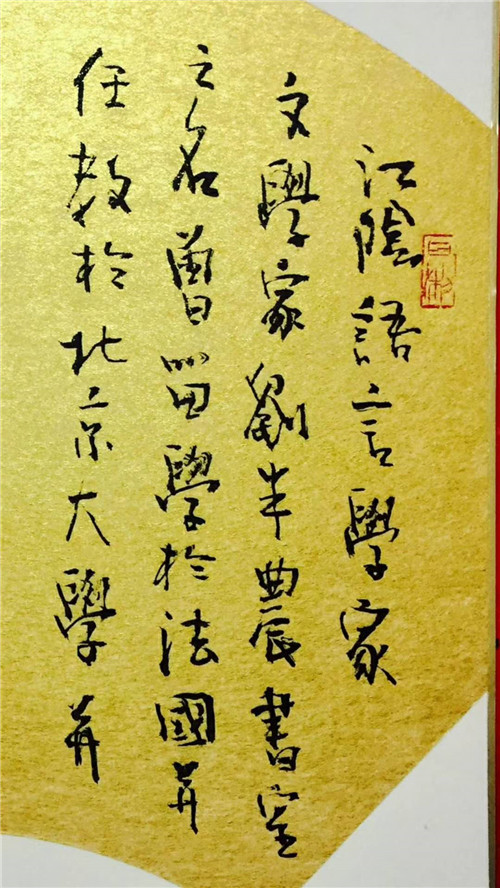 江陰語言學家
文學家劉半農書室
之名曾留學於法國并
任教於北京大學并